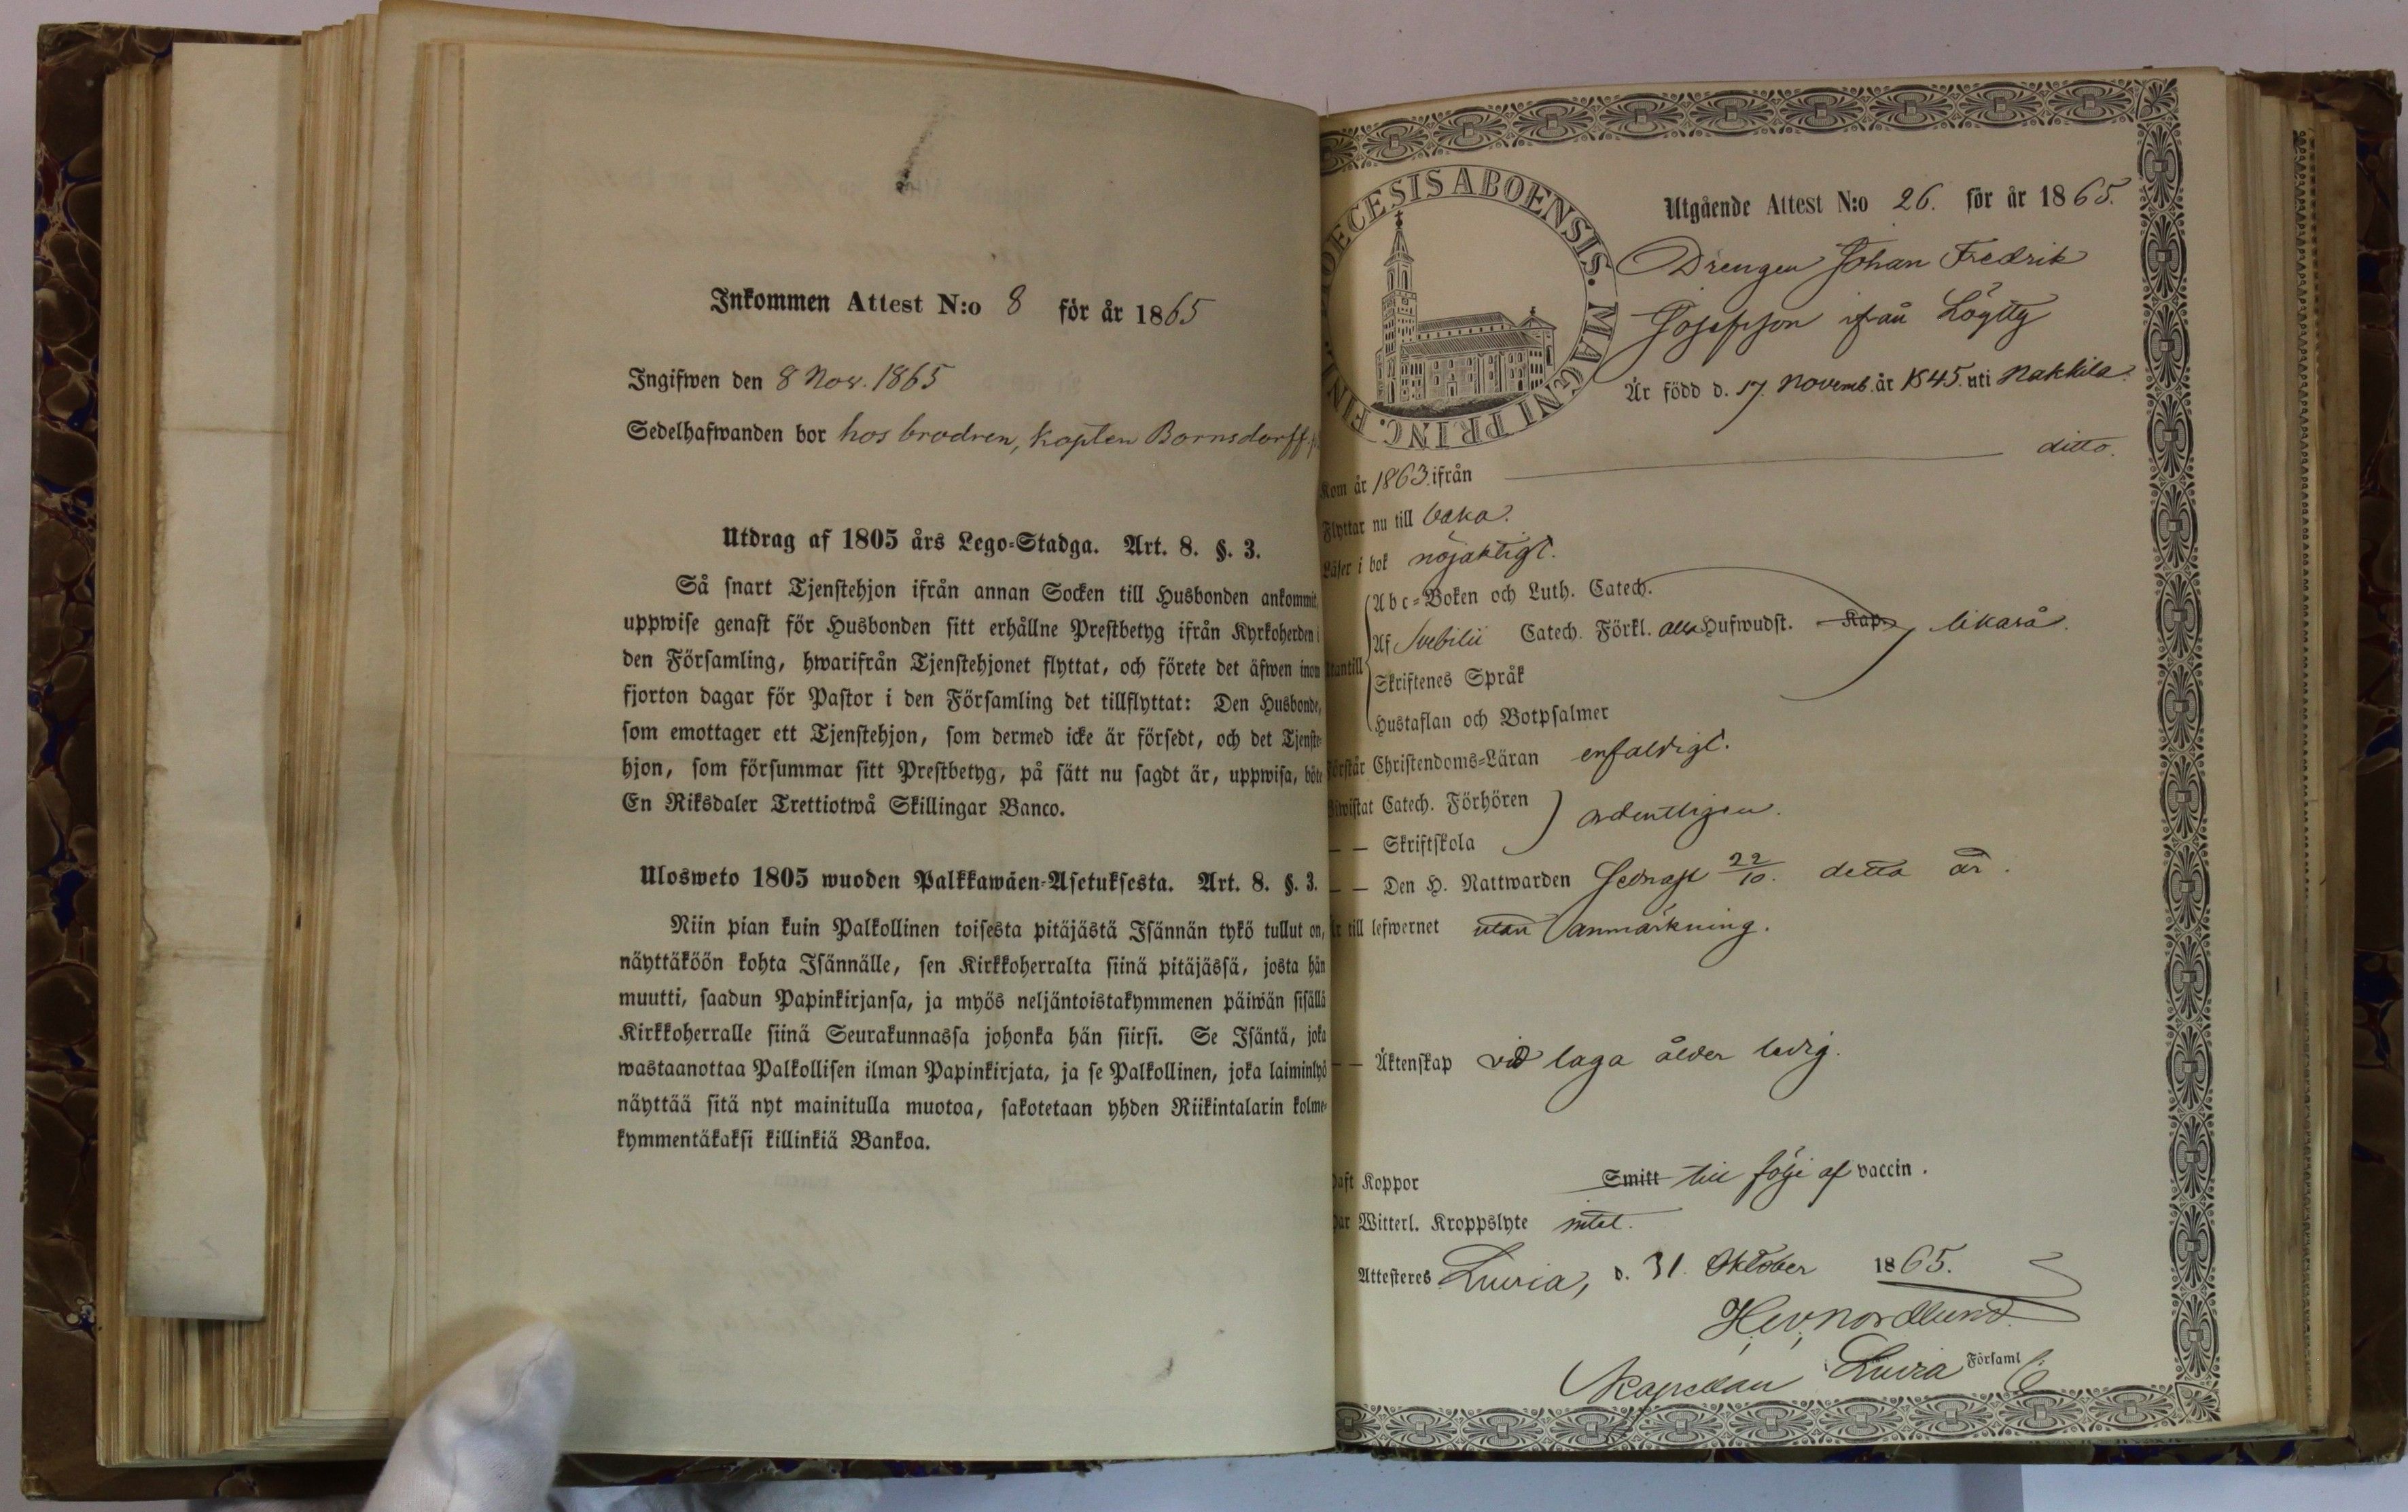 Inkommen Attest N:o 8 för år 1865
Ingifwen den 8 Nov. 1865
Sedelhafwanden bor hos brodren, kapten Bornsdorff
Utdrag af 1805 års Lego-Stadga. Art. 8. §. 3.
Så snart Tjenstehjon ifrån annan Socken till Husbonden ankommit,
uppwise genast för Husbonden sitt erhållne Prestbetyg ifrån Kyrkoherden i
den Församling, hwarifrån Tjenstehjonet flyttat, och förete det äfwen inom
fjorton dagar för Pastor i den Församling det tillflyttat: Den Husbonde,
som emottager ett Tjenstehjon, som dermed icke är försedt, och det Tjenste-
hjon, som försummar sitt Prestbetyg, på sätt nu sagdt är, uppwisa, böte
En Riksdaler Trettiotwå Skillingar Banco.
Ulosweto 1805 wuoden Palkkawäen-Asetuksesta. Art. 8. §. 3.
Niin pian kuin Palkollinen toisesta pitäjästä Isännän tykö tullut on,
näyttäköön kohta Isännälle, sen Kirkkoherralta siinä pitäjässä, josta hän
muutti, saadun Papinkirjansa, ja myös neljäntoistakymmenen päiwän sisällä
Kirkkoherralle siinä Seurakunnassa johonka hän siirsi. Se Isäntä, joka
wastaanottaa Palkollisen ilman Papinkirjata, ja se Palkollinen, joka laiminlyö
näyttää sitä nyt mainitulla muotoa, sakotetaan yhden Riikintalarin kolme-
kymmentäkaksi killinkiä Bankoa.
DIOECESIS ABOENSIS. MAGNI PRINC. FINL.
Utgående Attest N:o 26. för år 1865.
Drengen Johan Fredrik
Josefsson ifrån Löytty
Är född d. 17. Novemb. år 1845. uti Nakkila.
Kom år 1863. ifrån ditto.
Flyttar nu till baka.
Läser i bok nöjaktigt.
Abc-Boken och Luth. Catech.
Af Svebilii Catech. Förkl. alla Hufwudst. Kap. likaså.
Utantill
Skriftenes Språk
Hustaflan och Botpsalmer
Förstår Christendoms-Läran enfaldigt.
Biwistat Catech. Förhören ordentligen.
— — Skriftskola
— — Den H. Nattwarden sednast 22/10. detta år.
Är till lefwernet utan anmärkning.
— — Äktenskap vid laga ålder ledig.
Haft Koppor Smitt till följe af vaccin.
Har Witterl. Kroppslyte intet.
Attesteres Luvia, d. 31. Oktober 1865.
Nordlund
Kapellan i Luvia Församl